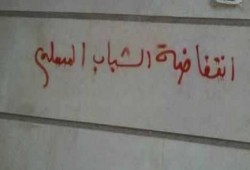 انتفاضة الشباب المسلم